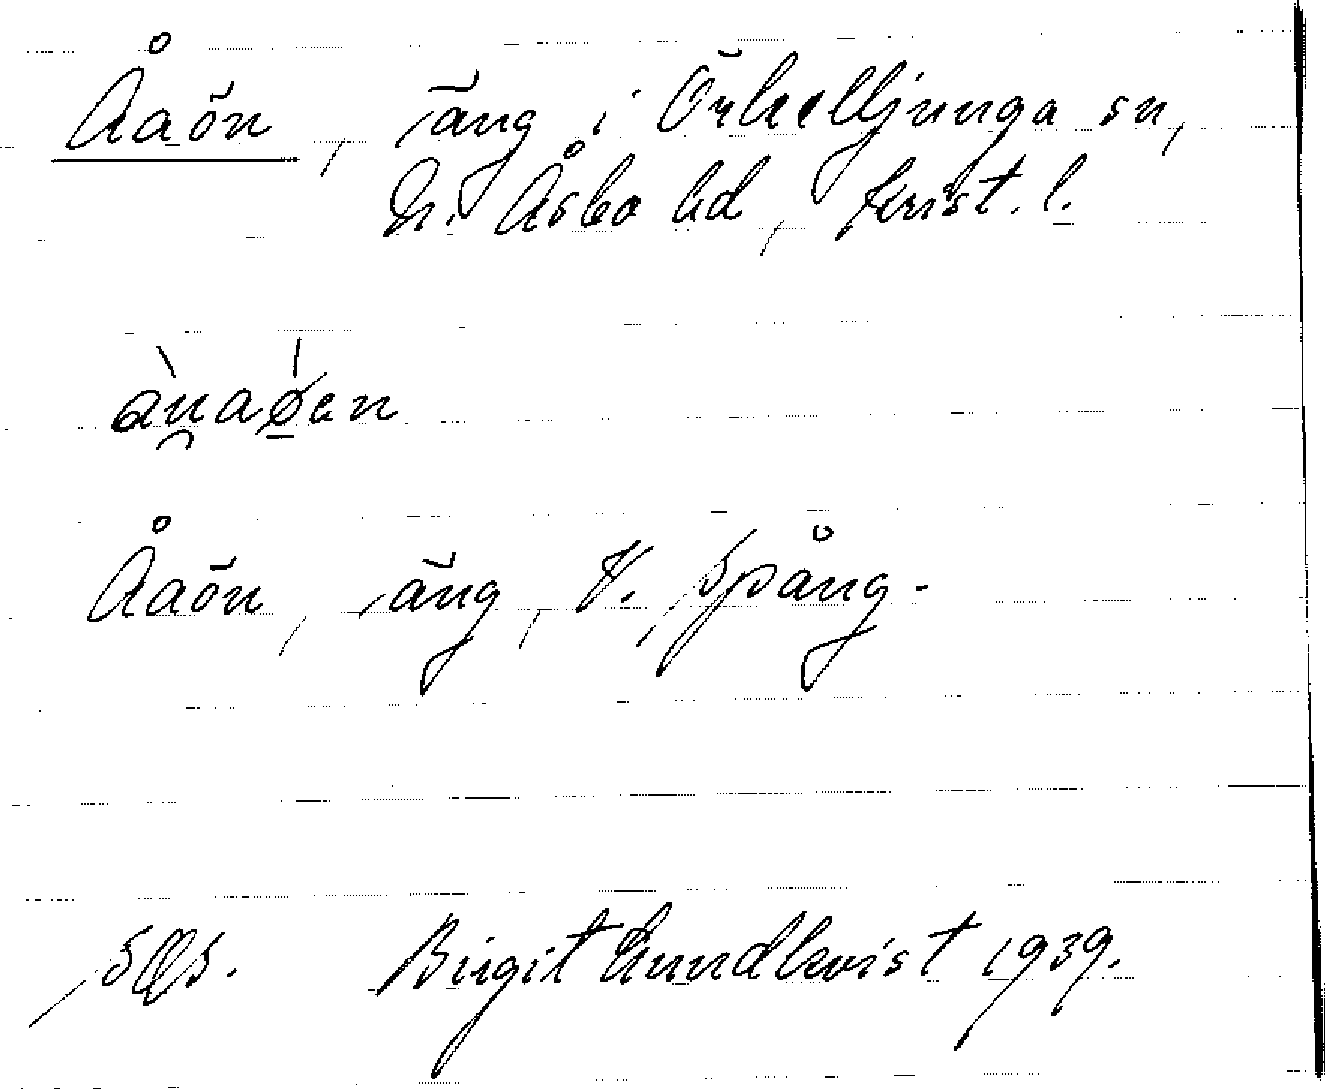 Åaön, äng i Örkelljunga sn,
N. Åsbo hd, Krist. l.
Åaön, äng, V. Spång.
Birgit Lundkvist 1939.